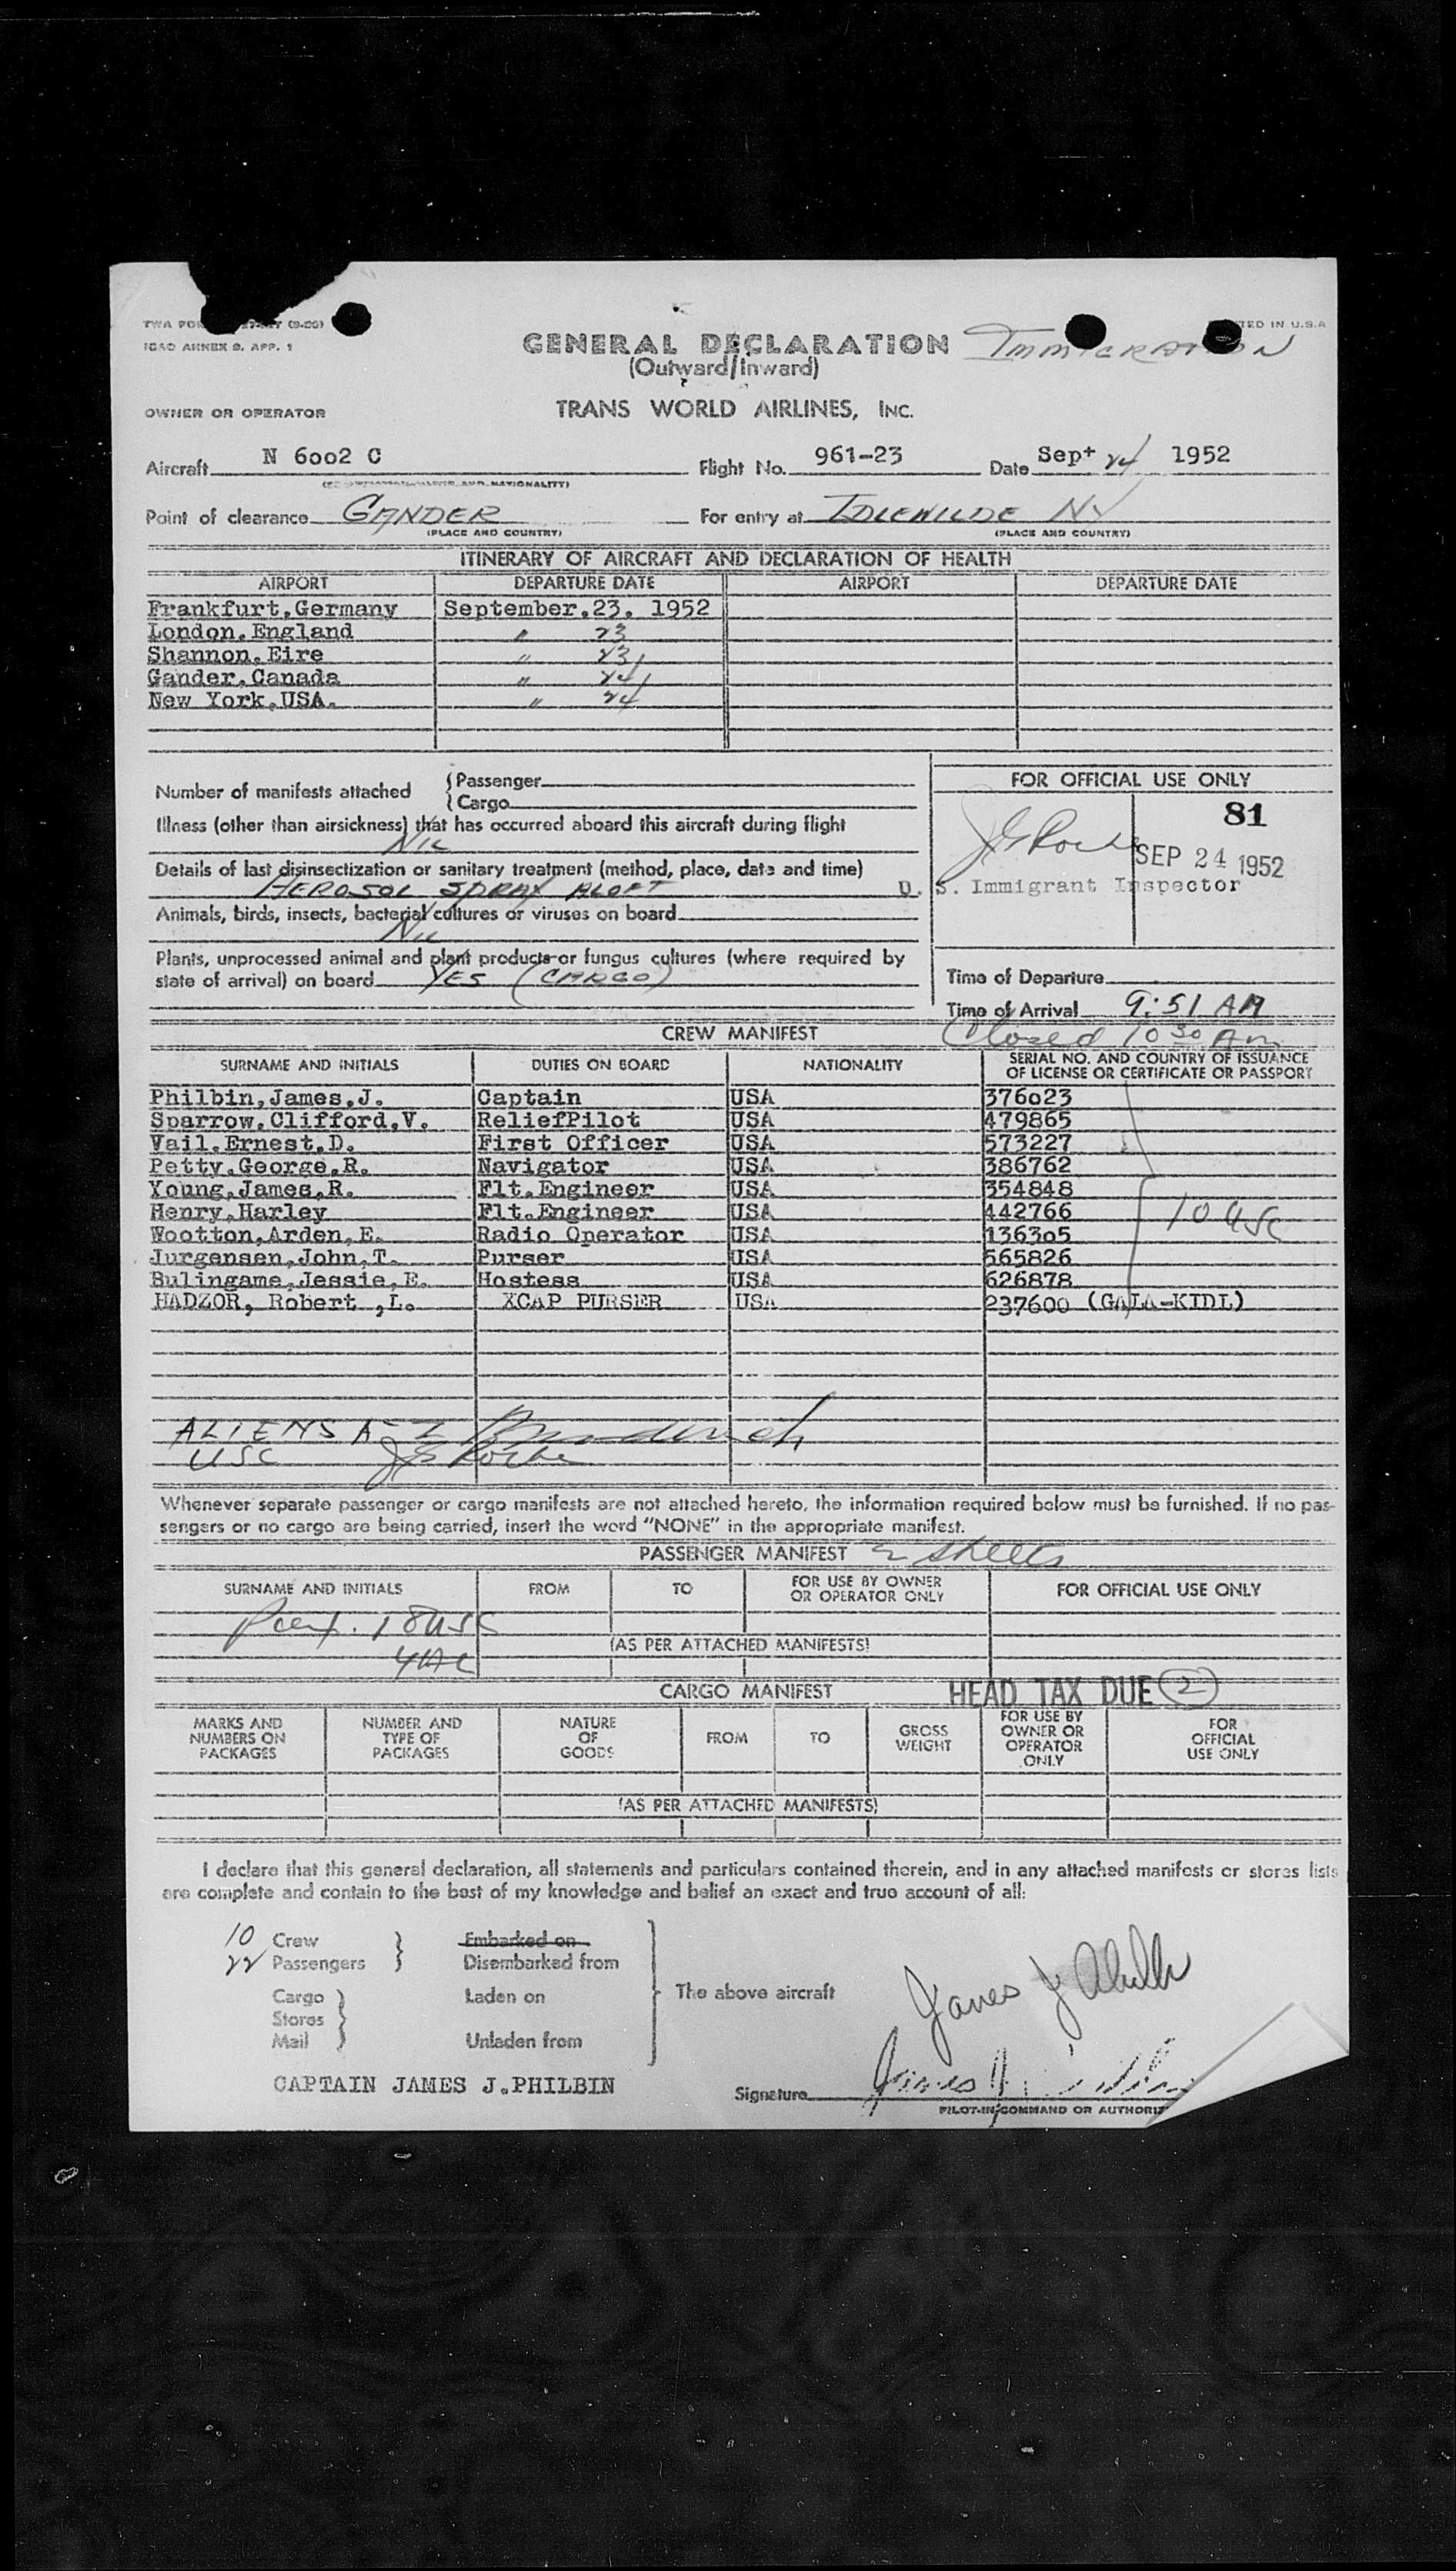 TWA FOR (9-50)
ICAO ANNEX 9, APP. 1
TED IN U.S.A
GENERAL DECLARATION IMMIGRATION
(Outward/Inward)
OWNER OR OPERATOR TRANS WORLD AIRLINES, INC.
Aircraft N 6002 C Flight No. 961-23 Date Sept 24 1952
Point of clearance GANDER For entry at IDLEWILDE NY
(PLACE AND COUNTRY) (PLACE AND COUNTRY)
ITINERARY OF AIRCRAFT AND DECLARATION OF HEALTH
AIRPORT DEPARTURE DATE AIRPORT DEPARTURE DATE
Frankfurt,Germany September.23. 1952
London.England " 23
Shannon.Eire " 23
Gander.Canada " 24
New York.USA. " 24
Number of manifests attached {Passenger
{Cargo
FOR OFFICIAL USE ONLY
81
Illness (other than airsickness) that has occurred aboard this aircraft during flight
NIL
SEP 24 1952
Details of last disinsectization or sanitary treatment (method, place, date and time)
AEROSOL SPRAY ALOFT
U. S. Immigrant Inspector
Animals, birds, insects, bacterial cultures or viruses on board
NIL
Plants, unprocessed animal and plant products or fungus cultures (where required by
state of arrival) on board YES (CARGO)
Time of Departure
Time of Arrival 9:51 AM
CREW MANIFEST Closed 10 30 Am
SURNAME AND INITIALS DUTIES ON BOARD NATIONALITY SERIAL NO. AND COUNTRY OF ISSUANCE
OF LICENSE OR CERTIFICATE OR PASSPORT
Philbin,James,J. Captain USA 376o23
Sparrow.Clifford,V. ReliefPilot USA 479865
Vail.Ernest.D. First Officer USA 573227
Petty.George.R. Navigator USA 386762
Young,James,R. Flt.Engineer USA 354848
Henry.Harley Flt.Engineer USA 442766
Wootton,Arden,E. Radio Operator USA 1363o5
Jurgensen,John,T. Purser USA 565826
Bulingame,Jessie,E. Hostess USA 626878
HADZOR, Robert ,L. XCAP PURSER USA 237600 (GALA-KIDL)
10 USC
ALIENS A-Z
USC
Whenever separate passenger or cargo manifests are not attached hereto, the information required below must be furnished. If no pas-
sengers or no cargo are being carried, insert the word "NONE" in the appropriate manifest.
PASSENGER MANIFEST 2 sheets
SURNAME AND INITIALS FROM TO FOR USE BY OWNER
OR OPERATOR ONLY FOR OFFICIAL USE ONLY
18 USC
(AS PER ATTACHED MANIFESTS)
CARGO MANIFEST HEAD TAX DUE 2
MARKS AND
NUMBERS ON
PACKAGES
NUMBER AND
TYPE OF
PACKAGES
NATURE
OF
GOODS
FROM
TO
GROSS
WEIGHT
FOR USE BY
OWNER OR
OPERATOR
ONLY
FOR
OFFICIAL
USE ONLY
(AS PER ATTACHED MANIFESTS)
I declare that this general declaration, all statements and particulars contained therein, and in any attached manifests or stores lists
are complete and contain to the best of my knowledge and belief an exact and true account of all:
10 Crew } Embarked on
22 Passengers } Disembarked from
Cargo } Laden on The above aircraft
Stores
Mail } Unladen from
James J Philbin
CAPTAIN JAMES J.PHILBIN Signature James J. Philbin
PILOT-IN-COMMAND OR AUTHORIZ